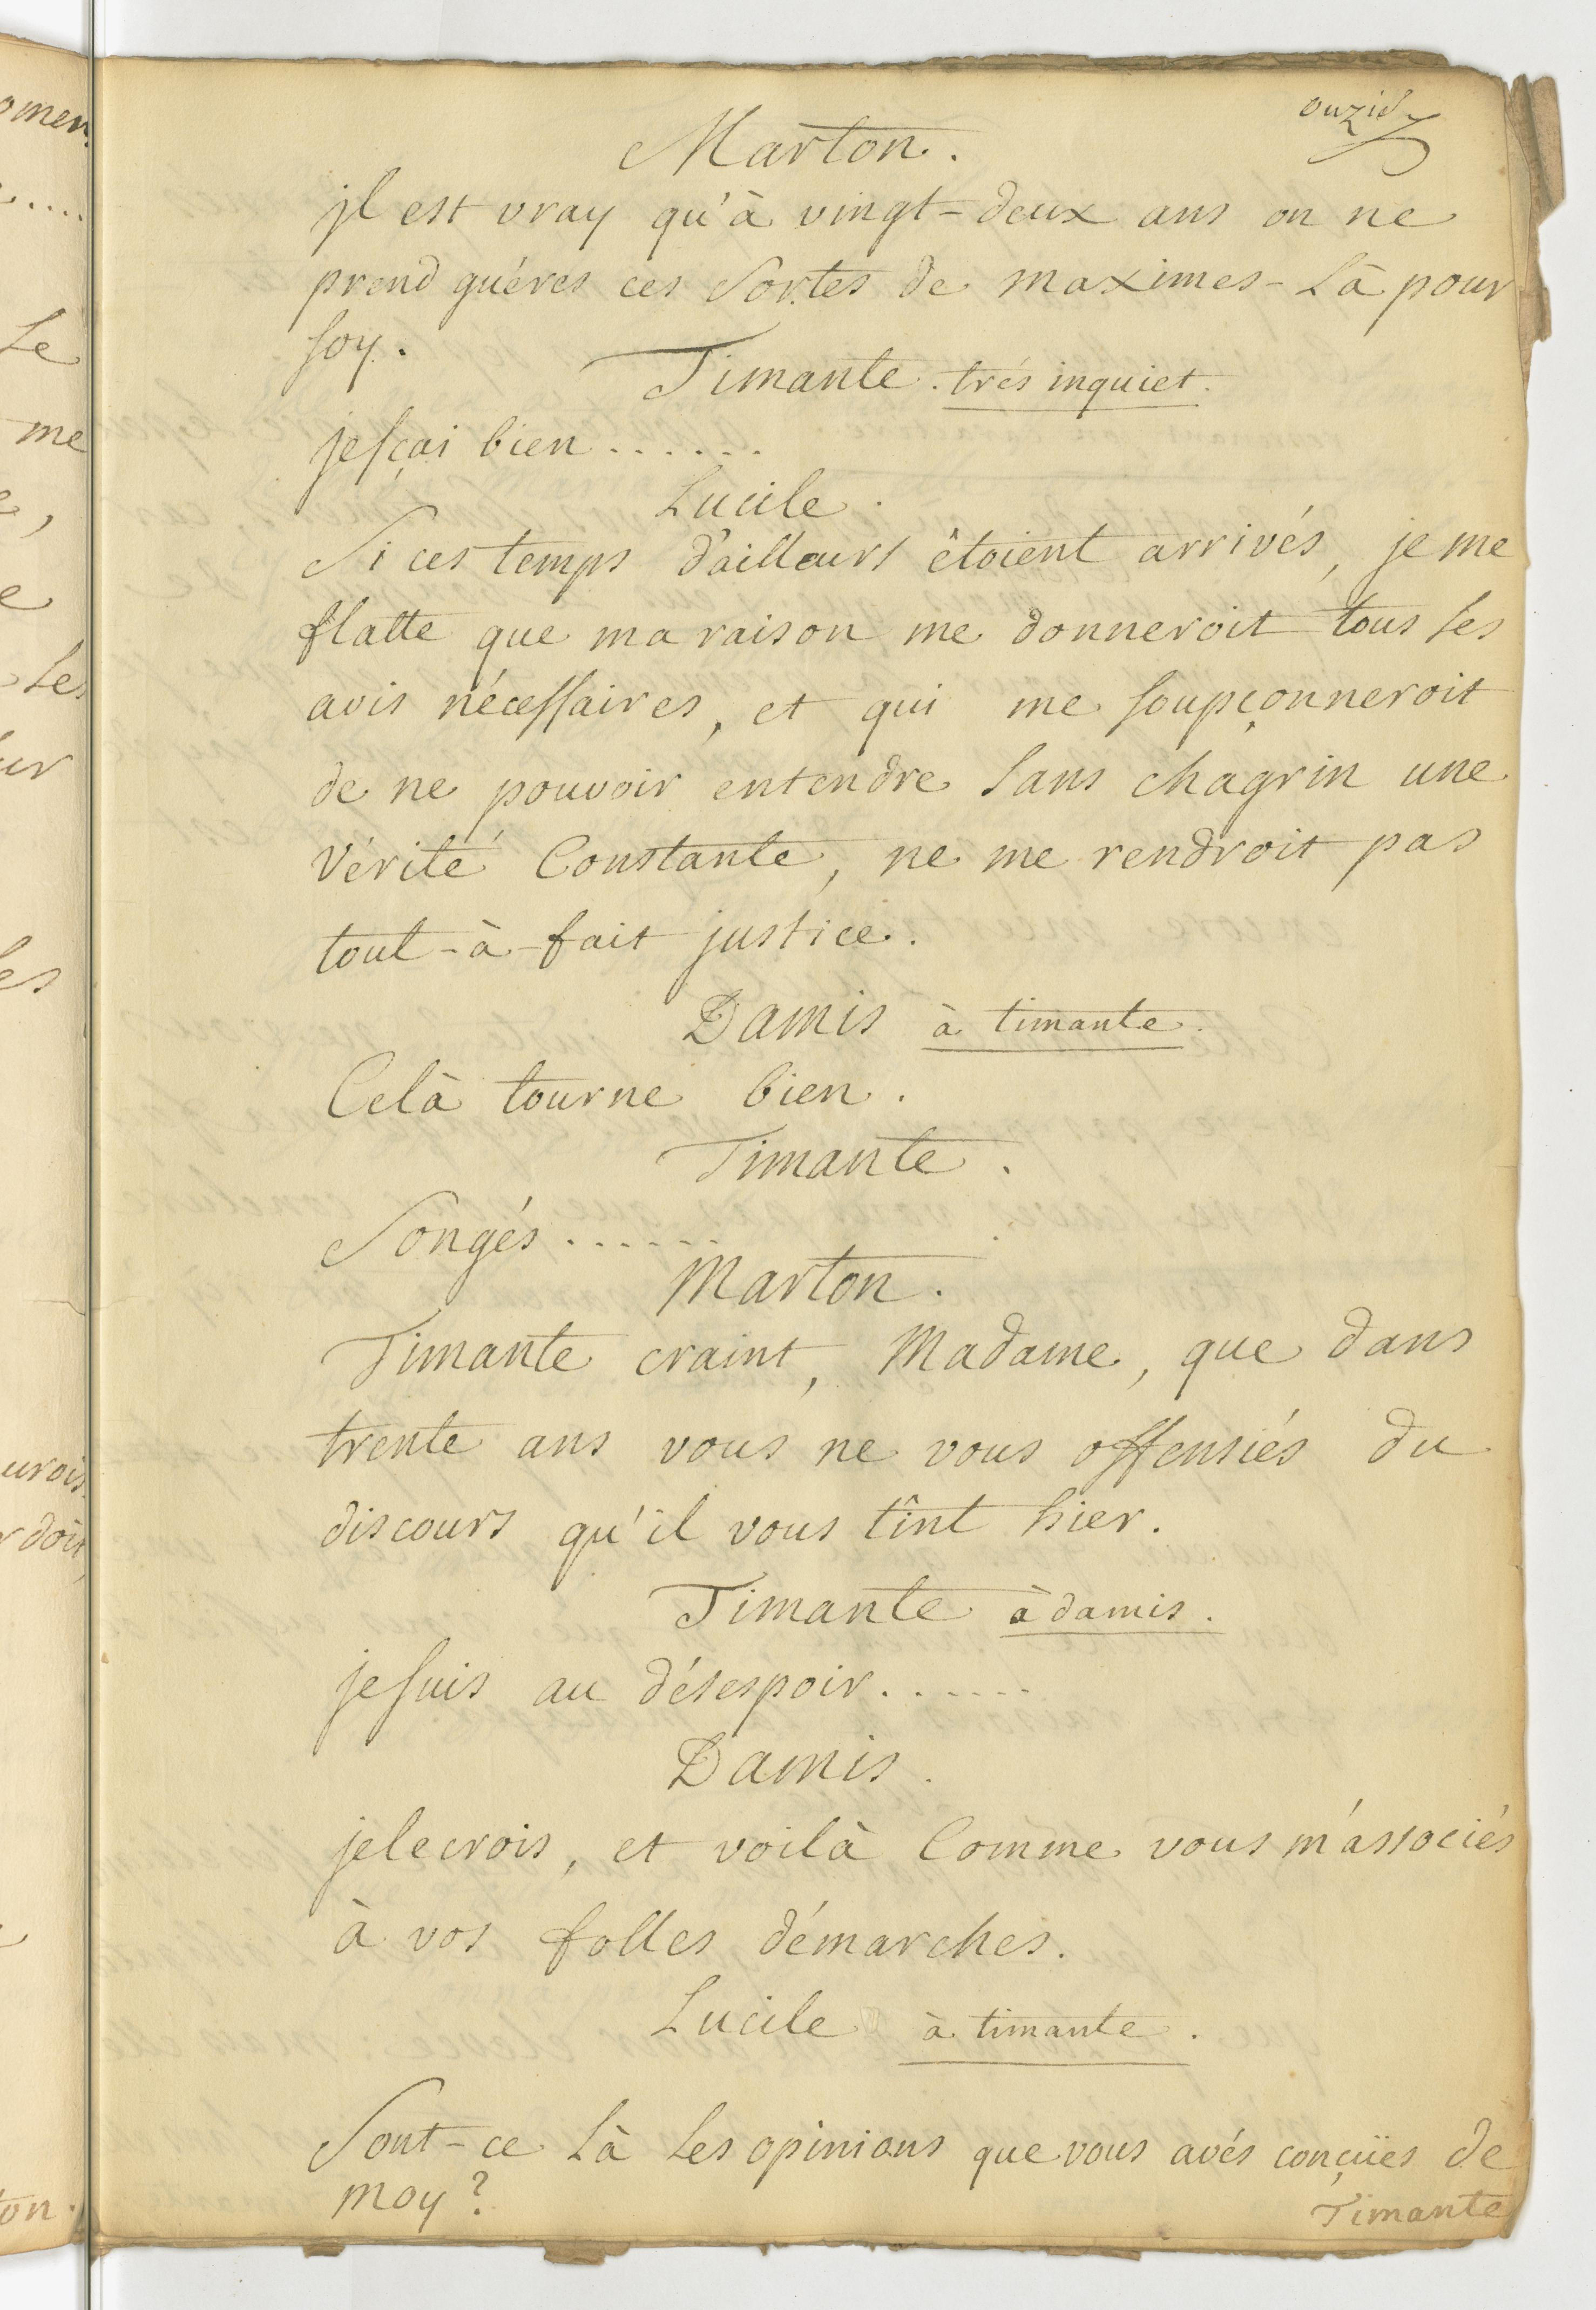 Marton.
jl est vray qu'à vingt-deux ans on ne
prend guéres ces sortes de maximes-là pour
soy.
Timante. trés inquiet.
je sçai bien......
Lucile.
Si ces temps d'ailleurs êtoient arrivés, je me
flatte que ma raison me donneroit tous les
avis nécessaires, et qui me soupçonneroit
de ne pouvoir entendre sans chagrin une
vérité Constante, ne me rendroit pas
tout-à-fait justice.
Damis à timante.
Celà tourne bien.
Timante.
Songés......
Marton.
Timante craint, Madame, que dans
trente ans vous ne vous offensiés du
discours qu'il vous tînt hier.
Timante à damis.
je suis au désespoir......
Damis.
je le crois, et voilà Comme vous m'associés
à vos folles démarches.
Lucile à timante.
Sont-ce là les opinions que vous avés conçües de
moy?
Timante